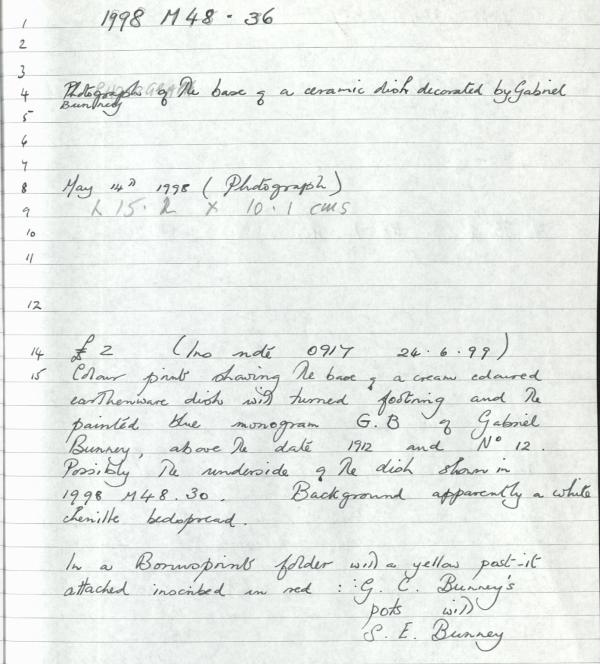 1 1998 M48.36
2
3
4 Photograph of the base of a ceramic dish decorated by Gabriel
Bunney
5
6
7
8 May 14th 1998 (Photograph)
9 h 15.2 x 10.1 cms
10
11
12
14 £2 (Ins note 0917 24.6.99)
15 Colour prints showing the base of a cream coloured
earthenware dish with turned footring and the
painted blue monogram G.B of Gabriel
Bunney, above the date 1912 and No 12.
Possibly the underside of the dish shown in
1998 M48.30. Background apparently a white
chenille bedspread.
In a Bonusprints folder with a yellow post-it
attached inscribed in red :: G. C. Bunney's
pots with
S. E. Bunney